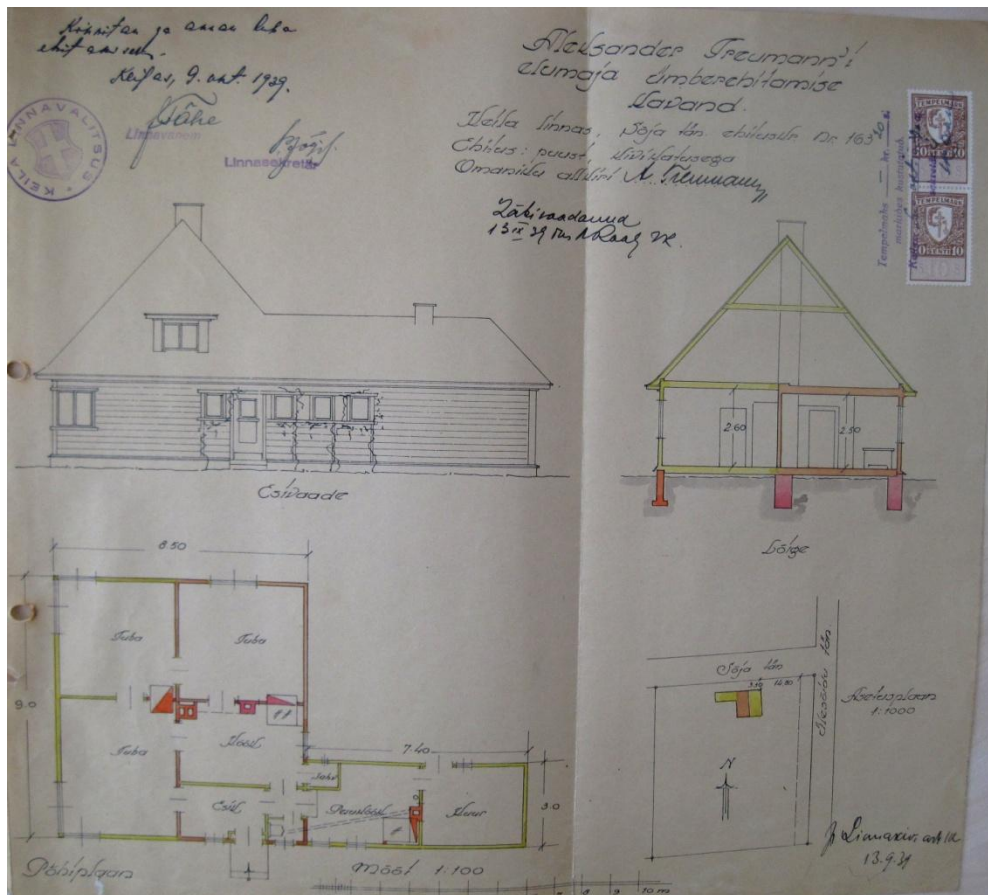 Kinnitan ja annan luba
ehitamiseks.
Keilas, 9. okt. 1939.
Linnavanem
Linnasekretär
KEILA LINNAVALITSUS
Aleksander Treumann'i
elumaja ümberehitamise
kavand.
Keila linnas, Sõja tän. ehituskr. Nr. 163
Ehitus: puust, kivikatusega
Omaniku allkiri A. Treumann
Läbivaadanud
13 IX 39
TEMPELMARK
10 SENTI 10
TEMPELMARK
10 SENTI 10
Tempelmaks — kr.
markides kustutatud.
Esivaade
2.60
2.50
Lõige
8.50
9.0
Tuba
Tuba
Tuba
Köök
Esik
7.40
3.0
Pesuköök
Kuur
Põhiplaan
Mõõt 1:100
10 m
Sõja tän.
Asetusplaan
1:1000
N
13.9.39